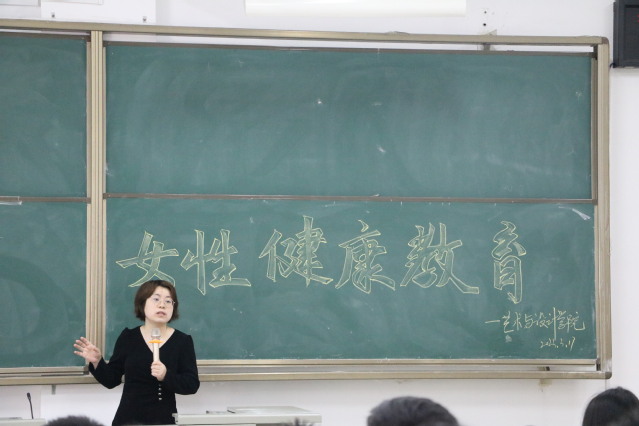 女性健康教育
—艺术与设计学院